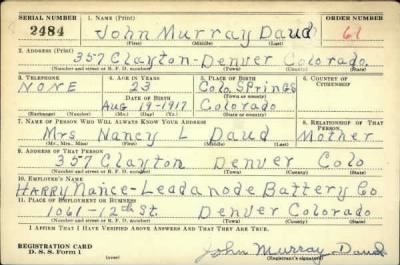 SERIAL NUMBER 1. NAME (Print) ORDER NUMBER
2484 John Murray Daud 61
(First) (Middle) (Last)
2. ADDRESS (Print)
357 Clayton-Denver Colorado
(Number and street or R. F. D. number) (Town) (County) (State)
3. TELEPHONE 4. AGE IN YEARS 5. PLACE OF BIRTH 6. COUNTRY OF CITIZENSHIP
NONE 23 Colo Springs
DATE OF BIRTH (Town or county)
Aug 19-1917 Colorado
(Exchange) (Number) (Mo.) (Day) (Yr.) (State or country)
7. NAME OF PERSON WHO WILL ALWAYS KNOW YOUR ADDRESS 8. RELATIONSHIP OF THAT PERSON
Mrs Nancy L Daud Mother
(Mr., Mrs., Miss) (First) (Middle) (Last)
9. ADDRESS OF THAT PERSON
357 Clayton Denver Colo
(Number and street or R. F. D. number) (Town) (County) (State)
10. EMPLOYER'S NAME
HARRY Nance-Leadanode Battery Co
11. PLACE OF EMPLOYMENT OR BUSINESS
1061-12th St. Denver Colorado
(Number and street or R. F. D. number) (Town) (County) (State)
I AFFIRM THAT I HAVE VERIFIED ABOVE ANSWERS AND THAT THEY ARE TRUE.
REGISTRATION CARD
D. S. S. Form 1 John Murray Daud
(Registrant's signature)